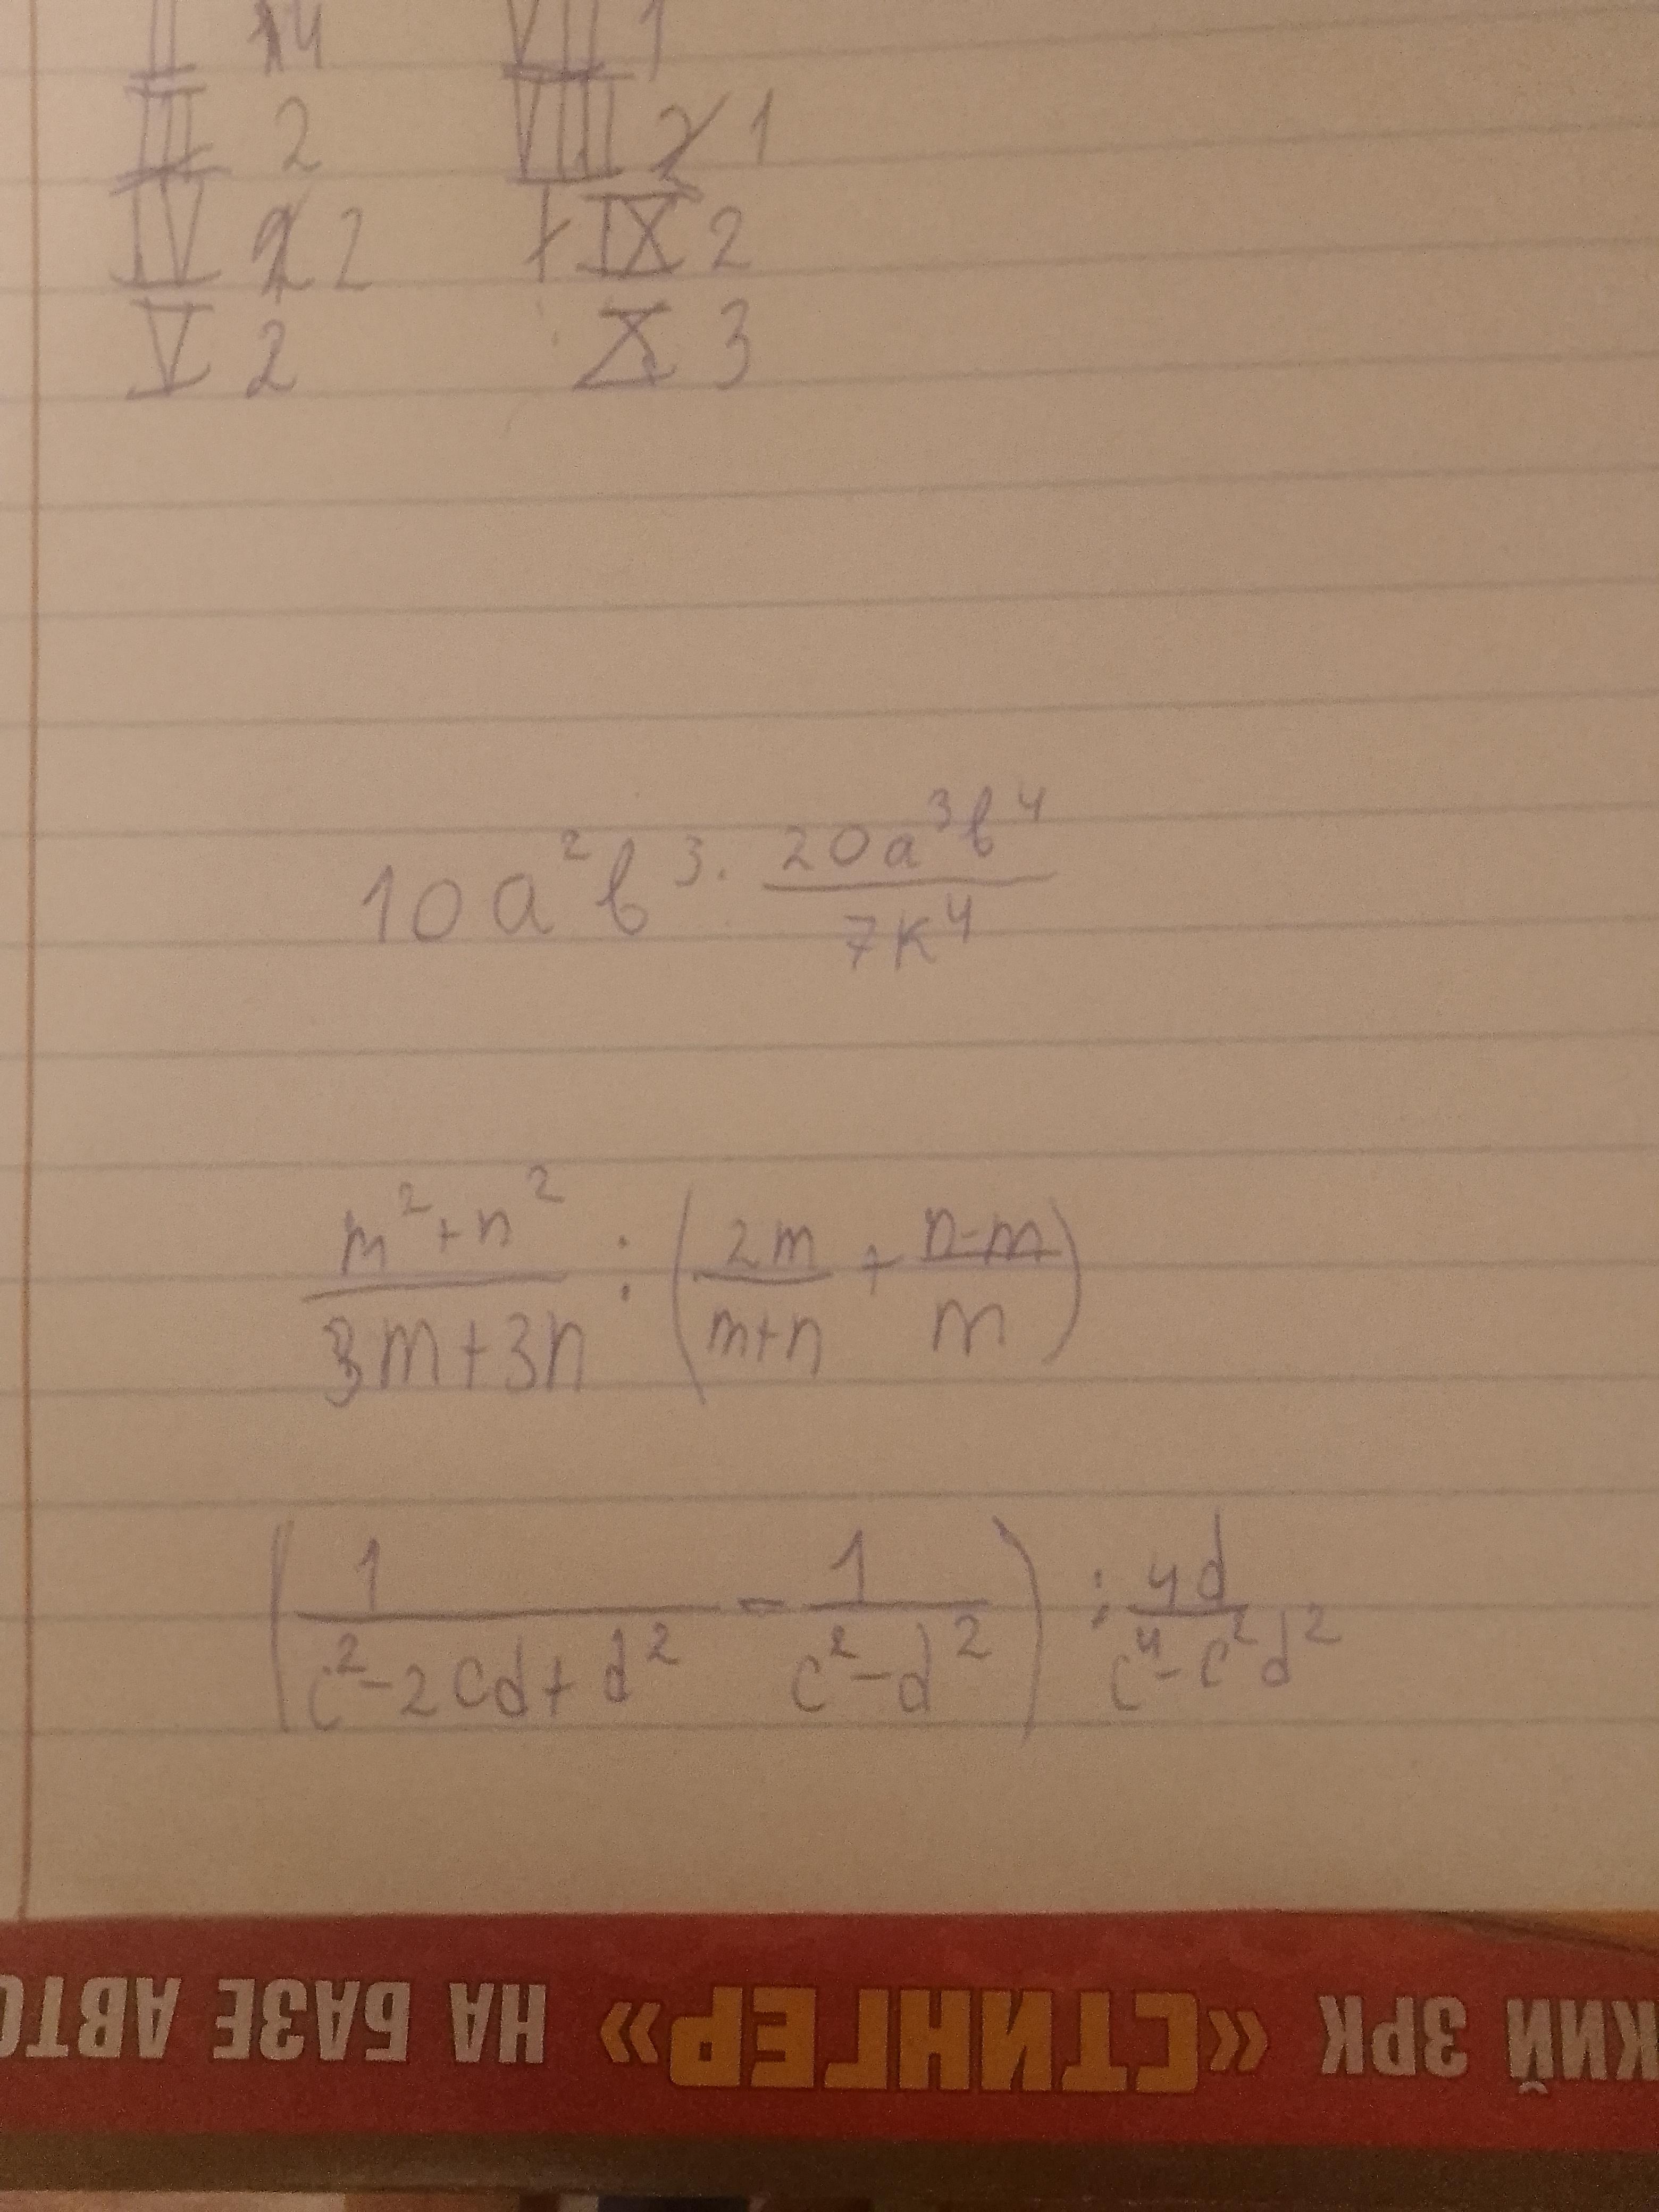 II 14 VII 1
III 2 VIII 2 1
IV 2 2 + IX 2
V 2 X 3
10a²b³ · 20a³b⁴ / 7k⁴
(m²+n²) / (3m+3n) : (2m/(m+n) + (n-m)/m)
(1/(c²-2cd+d²) - 1/(c²-d²)) : 4d/(c⁴-c²d²)
КИЙ ЗРК «СТИНГЕР» НА БАЗЕ АВТО